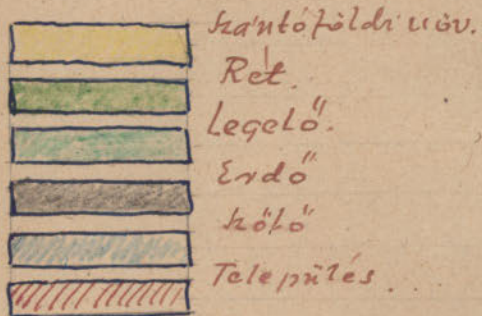 Szántóföldi növ.
Rét.
Legelő.
Erdő
Szőlő
Település.